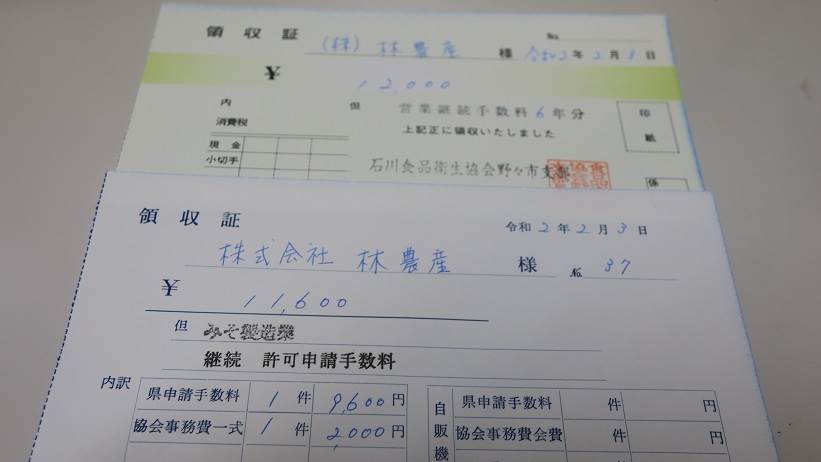 領収証
№
(株) 林農産 様 令和2年2月3日
¥ 12,000
内
消費税
但 営業継続手数料6年分
上記正に領収いたしました
印紙
現金
小切手
石川食品衛生協会野々市支部
係
領収証
令和2年2月3日
株式会社 林農産 様 № 37
¥ 11,600
但 みそ製造業
継続 許可申請手数料
内訳
県申請手数料 1件 9,600円
協会事務費一式 1件 2,000円
自販機
県申請手数料 件 円
協会事務費会費 件 円
件 円